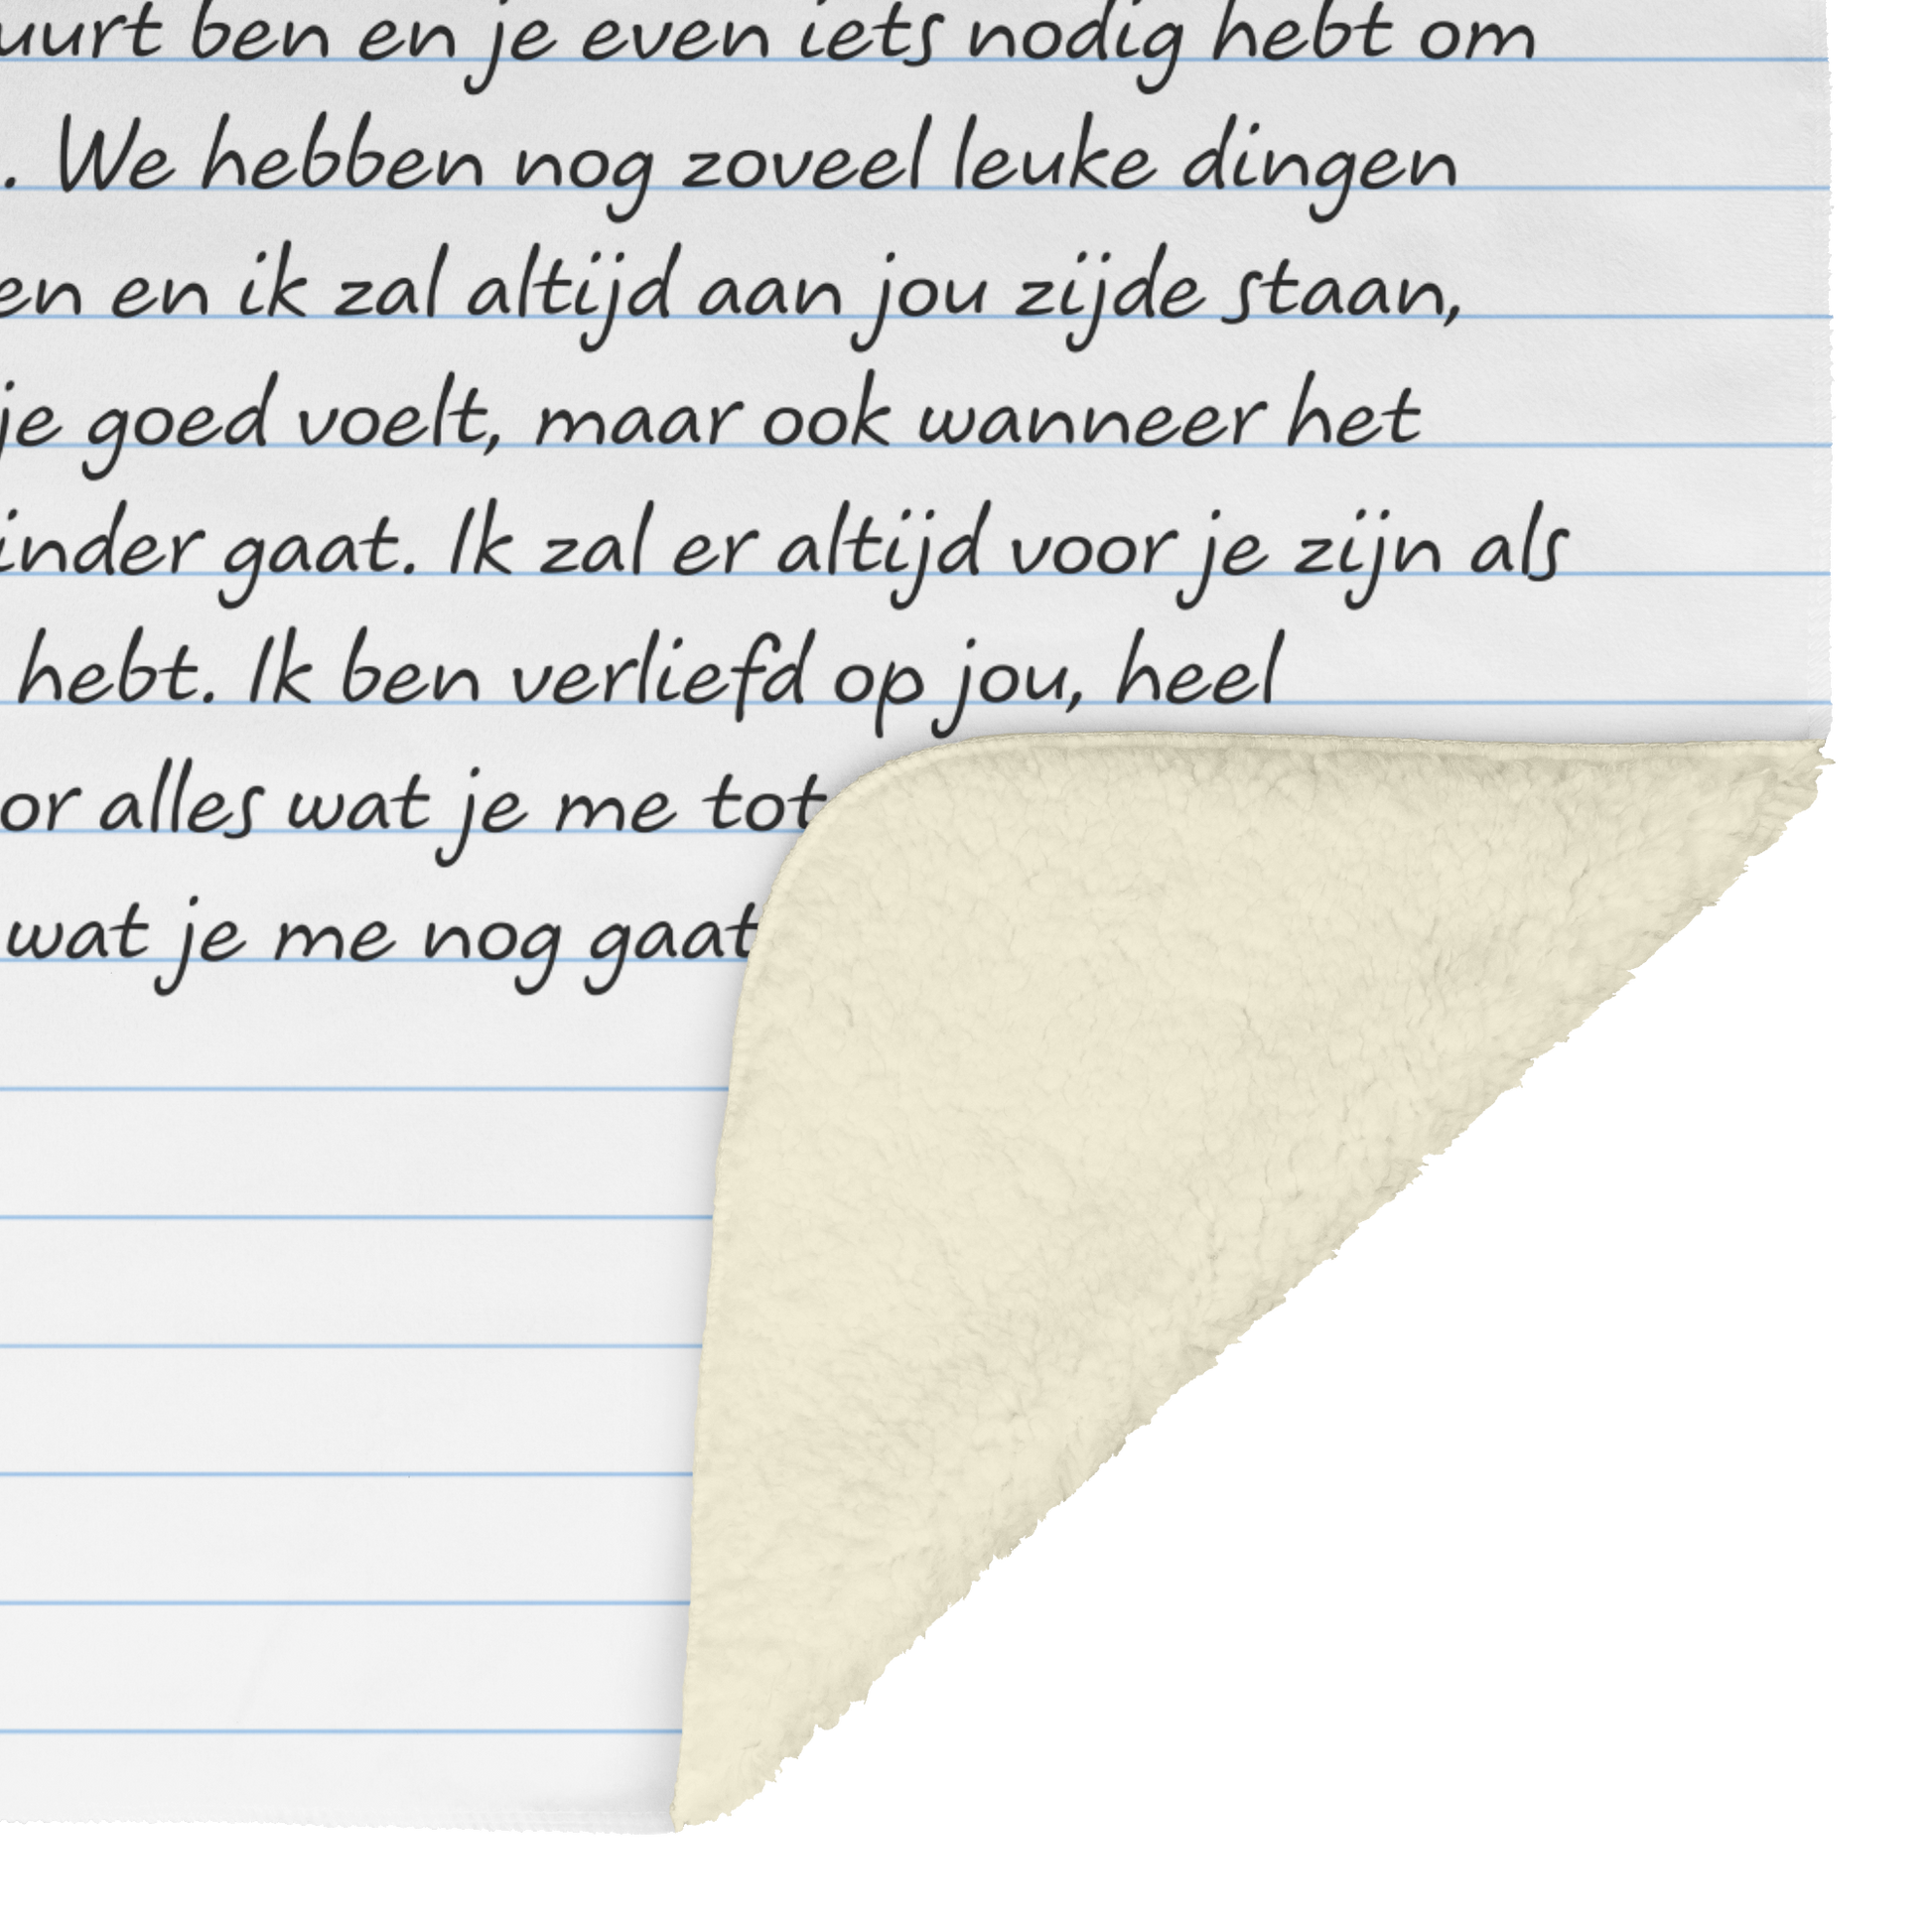 uurt ben en je even iets nodig hebt om
. We hebben nog zoveel leuke dingen
en en ik zal altijd aan jou zijde staan,
je goed voelt, maar ook wanneer het
inder gaat. Ik zal er altijd voor je zijn als
hebt. Ik ben verliefd op jou, heel
or alles wat je me tot
wat je me nog gaat